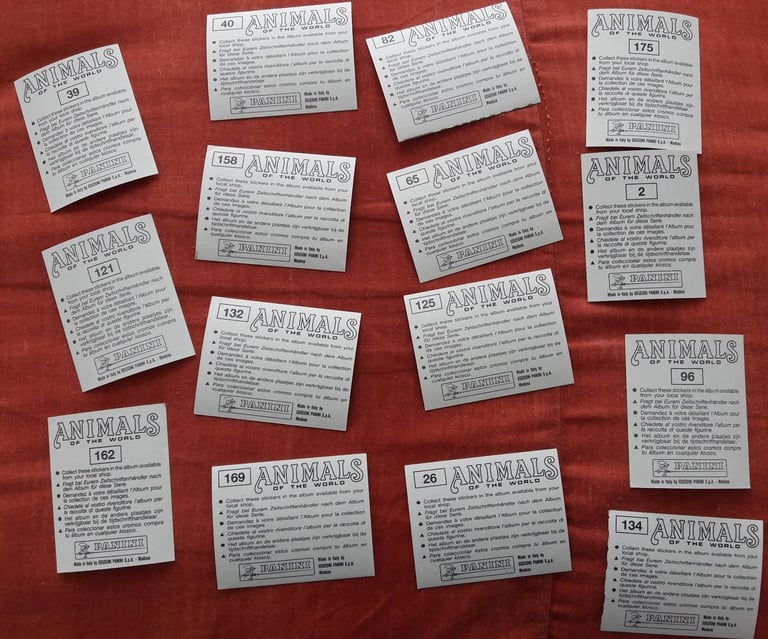 ANIMALS
OF THE WORLD
39
● Collect these stickers in the album available
from your local shop.
▲ Fragt bei Eurem Zeitschriftenhändler nach
dem Album für diese Serie.
● Demandez à votre détaillant l'Album pour
la collection de ces images.
▲ Chiedete al vostro rivenditore l'album per
la raccolta di queste figurine.
● Het album en de andere plaatjes zijn
verkrijgbaar bij de tijdschrifthandelaar.
▲ Para coleccionar estos cromos compra tu
álbum en cualquier kiosco.
PANINI
Made in Italy by EDIZIONI PANINI S.p.A. - Modena
40 ANIMALS
OF THE WORLD
● Collect these stickers in the album available from your
local shop.
▲ Fragt bei Eurem Zeitschriftenhändler nach dem Album
für diese Serie.
● Demandez à votre détaillant l'Album pour la collection
de ces images.
▲ Chiedete al vostro rivenditore l'album per la raccolta di
queste figurine.
● Het album en de andere plaatjes zijn verkrijgbaar bij de
tijdschrifthandelaar.
▲ Para coleccionar estos cromos compra tu álbum en
cualquier kiosco.
PANINI Made in Italy by
EDIZIONI PANINI S.p.A.
Modena
82 ANIMALS
OF THE WORLD
● Collect these stickers in the album available from your
local shop.
▲ Fragt bei Eurem Zeitschriftenhändler nach dem Album
für diese Serie.
● Demandez à votre détaillant l'Album pour la collection
de ces images.
▲ Chiedete al vostro rivenditore l'album per la raccolta di
queste figurine.
● Het album en de andere plaatjes zijn verkrijgbaar bij de
tijdschrifthandelaar.
▲ Para coleccionar estos cromos compra tu álbum en
cualquier kiosco.
PANINI Made in Italy by
EDIZIONI PANINI S.p.A.
Modena
ANIMALS
OF THE WORLD
175
● Collect these stickers in the album available
from your local shop.
▲ Fragt bei Eurem Zeitschriftenhändler nach
dem Album für diese Serie.
● Demandez à votre détaillant l'Album pour
la collection de ces images.
▲ Chiedete al vostro rivenditore l'album per
la raccolta di queste figurine.
● Het album en de andere plaatjes zijn
verkrijgbaar bij de tijdschrifthandelaar.
▲ Para coleccionar estos cromos compra tu
álbum en cualquier kiosco.
PANINI
Made in Italy by EDIZIONI PANINI S.p.A. - Modena
158 ANIMALS
OF THE WORLD
● Collect these stickers in the album available from your
local shop.
▲ Fragt bei Eurem Zeitschriftenhändler nach dem Album
für diese Serie.
● Demandez à votre détaillant l'Album pour la collection
de ces images.
▲ Chiedete al vostro rivenditore l'album per la raccolta di
queste figurine.
● Het album en de andere plaatjes zijn verkrijgbaar bij de
tijdschrifthandelaar.
▲ Para coleccionar estos cromos compra tu álbum en
cualquier kiosco.
PANINI Made in Italy by
EDIZIONI PANINI S.p.A.
Modena
65 ANIMALS
OF THE WORLD
● Collect these stickers in the album available from your
local shop.
▲ Fragt bei Eurem Zeitschriftenhändler nach dem Album
für diese Serie.
● Demandez à votre détaillant l'Album pour la collection
de ces images.
▲ Chiedete al vostro rivenditore l'album per la raccolta di
queste figurine.
● Het album en de andere plaatjes zijn verkrijgbaar bij de
tijdschrifthandelaar.
▲ Para coleccionar estos cromos compra tu álbum en
cualquier kiosco.
PANINI Made in Italy by
EDIZIONI PANINI S.p.A.
Modena
ANIMALS
OF THE WORLD
2
● Collect these stickers in the album available
from your local shop.
▲ Fragt bei Eurem Zeitschriftenhändler nach
dem Album für diese Serie.
● Demandez à votre détaillant l'Album pour
la collection de ces images.
▲ Chiedete al vostro rivenditore l'album per
la raccolta di queste figurine.
● Het album en de andere plaatjes zijn
verkrijgbaar bij de tijdschrifthandelaar.
▲ Para coleccionar estos cromos compra
tu álbum en cualquier kiosco.
PANINI
Made in Italy by EDIZIONI PANINI S.p.A. - Modena
ANIMALS
OF THE WORLD
121
● Collect these stickers in the album available
from your local shop.
▲ Fragt bei Eurem Zeitschriftenhändler nach
dem Album für diese Serie.
● Demandez à votre détaillant l'Album pour
la collection de ces images.
▲ Chiedete al vostro rivenditore l'album per
la raccolta di queste figurine.
● Het album en de andere plaatjes zijn
verkrijgbaar bij de tijdschrifthandelaar.
▲ Para coleccionar estos cromos compra tu
álbum en cualquier kiosco.
PANINI
Made in Italy by EDIZIONI PANINI S.p.A. - Modena
132 ANIMALS
OF THE WORLD
● Collect these stickers in the album available from your
local shop.
▲ Fragt bei Eurem Zeitschriftenhändler nach dem Album
für diese Serie.
● Demandez à votre détaillant l'Album pour la collection
de ces images.
▲ Chiedete al vostro rivenditore l'album per la raccolta di
queste figurine.
● Het album en de andere plaatjes zijn verkrijgbaar bij de
tijdschrifthandelaar.
▲ Para coleccionar estos cromos compra tu álbum en
cualquier kiosco.
PANINI Made in Italy by
EDIZIONI PANINI S.p.A.
Modena
125 ANIMALS
OF THE WORLD
● Collect these stickers in the album available from your
local shop.
▲ Fragt bei Eurem Zeitschriftenhändler nach dem Album
für diese Serie.
● Demandez à votre détaillant l'Album pour la collection
de ces images.
▲ Chiedete al vostro rivenditore l'album per la raccolta di
queste figurine.
● Het album en de andere plaatjes zijn verkrijgbaar bij de
tijdschrifthandelaar.
▲ Para coleccionar estos cromos compra tu álbum en
cualquier kiosco.
PANINI Made in Italy by
EDIZIONI PANINI S.p.A.
Modena
ANIMALS
OF THE WORLD
96
● Collect these stickers in the album available
from your local shop.
▲ Fragt bei Eurem Zeitschriftenhändler nach
dem Album für diese Serie.
● Demandez à votre détaillant l'Album pour
la collection de ces images.
▲ Chiedete al vostro rivenditore l'album per
la raccolta di queste figurine.
● Het album en de andere plaatjes zijn
verkrijgbaar bij de tijdschrifthandelaar.
▲ Para coleccionar estos cromos compra
tu álbum en cualquier kiosco.
PANINI
Made in Italy by EDIZIONI PANINI S.p.A. - Modena
ANIMALS
OF THE WORLD
162
● Collect these stickers in the album available
from your local shop.
▲ Fragt bei Eurem Zeitschriftenhändler nach
dem Album für diese Serie.
● Demandez à votre détaillant l'Album pour
la collection de ces images.
▲ Chiedete al vostro rivenditore l'album per
la raccolta di queste figurine.
● Het album en de andere plaatjes zijn
verkrijgbaar bij de tijdschrifthandelaar.
▲ Para coleccionar estos cromos compra
tu álbum en cualquier kiosco.
PANINI
Made in Italy by EDIZIONI PANINI S.p.A. - Modena
169 ANIMALS
OF THE WORLD
● Collect these stickers in the album available from your
local shop.
▲ Fragt bei Eurem Zeitschriftenhändler nach dem Album
für diese Serie.
● Demandez à votre détaillant l'Album pour la collection
de ces images.
▲ Chiedete al vostro rivenditore l'album per la raccolta di
queste figurine.
● Het album en de andere plaatjes zijn verkrijgbaar bij de
tijdschrifthandelaar.
▲ Para coleccionar estos cromos compra tu álbum en
cualquier kiosco.
PANINI Made in Italy by
EDIZIONI PANINI S.p.A.
Modena
26 ANIMALS
OF THE WORLD
● Collect these stickers in the album available from your
local shop.
▲ Fragt bei Eurem Zeitschriftenhändler nach dem Album
für diese Serie.
● Demandez à votre détaillant l'Album pour la collection
de ces images.
▲ Chiedete al vostro rivenditore l'album per la raccolta di
queste figurine.
● Het album en de andere plaatjes zijn verkrijgbaar bij de
tijdschrifthandelaar.
▲ Para coleccionar estos cromos compra tu álbum en
cualquier kiosco.
PANINI Made in Italy by
EDIZIONI PANINI S.p.A.
Modena
134 ANIMALS
OF THE WORLD
● Collect these stickers in the album available from your
local shop.
▲ Fragt bei Eurem Zeitschriftenhändler nach dem Album
für diese Serie.
● Demandez à votre détaillant l'Album pour la collection
de ces images.
▲ Chiedete al vostro rivenditore l'album per la raccolta di
queste figurine.
● Het album en de andere plaatjes zijn verkrijgbaar bij de
tijdschrifthandelaar.
▲ Para coleccionar estos cromos compra tu álbum en
cualquier kiosco.
PANINI Made in Italy by
EDIZIONI PANINI S.p.A.